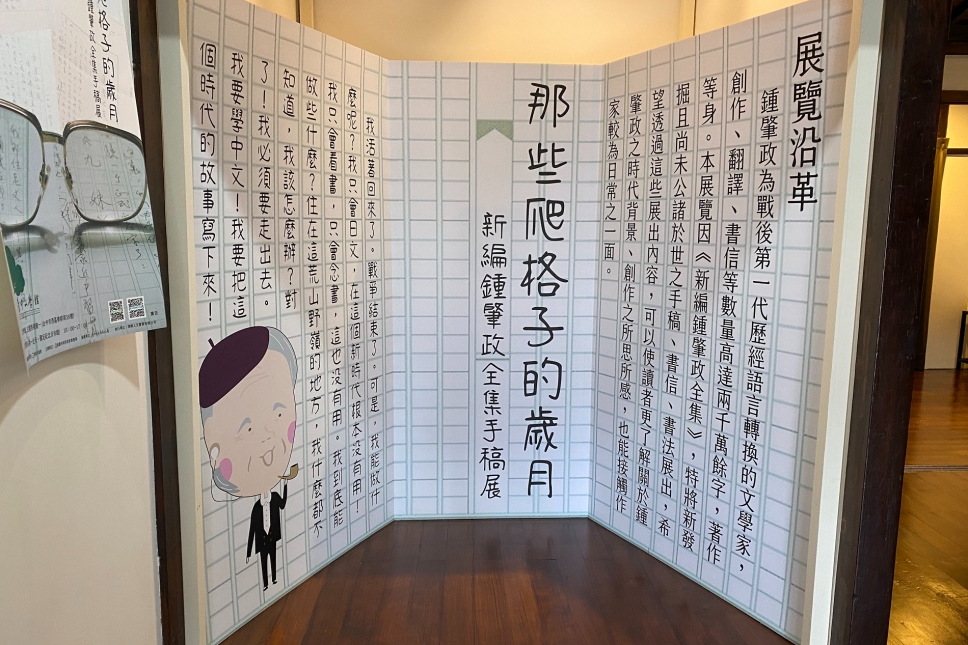 展覽沿革
鍾肇政為戰後第一代歷經語言轉換的文學家，
創作、翻譯、書信等數量高達兩千萬餘字，著作
等身。本展覽因《新編鍾肇政全集》，特將新發
掘且尚未公諸於世之手稿、書信、書法展出，希
望透過這些展出內容，可以使讀者更了解關於鍾
肇政之時代背景、創作之所思所感，也能接觸作
家較為日常之一面。
那些爬格子的歲月
新編鍾肇政全集手稿展
我活著回來了。戰爭結束了。可是，我能做什
麼呢？我只會日文，在這個新時代根本沒有用！
我只會看書，只會念書，這也沒有用。我到底能
做些什麼？住在這荒山野嶺的地方，我什麼都不
知道，我該怎麼辦？對
了！我必須要走出去。
我要學中文！我要把這
個時代的故事寫下來！
爬格子的歲月
鍾肇政全集手稿展